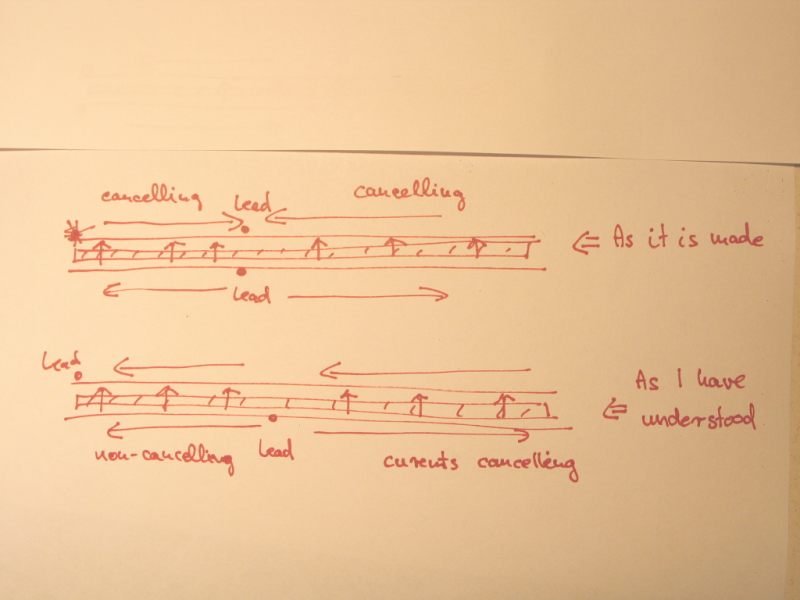 cancelling lead cancelling
⇐ As it is made
lead
lead
As I have
⇐ understood
non-cancelling lead curents cancelling